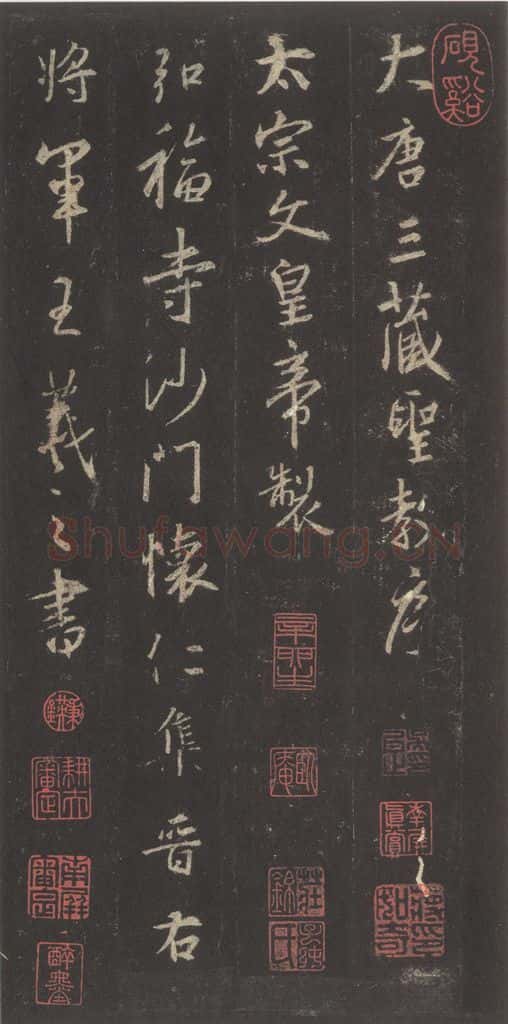 大唐三藏聖教序
太宗文皇帝製
弘福寺沙門懷仁集晉右
將軍王羲之書
硯谿
Shufawang.CN